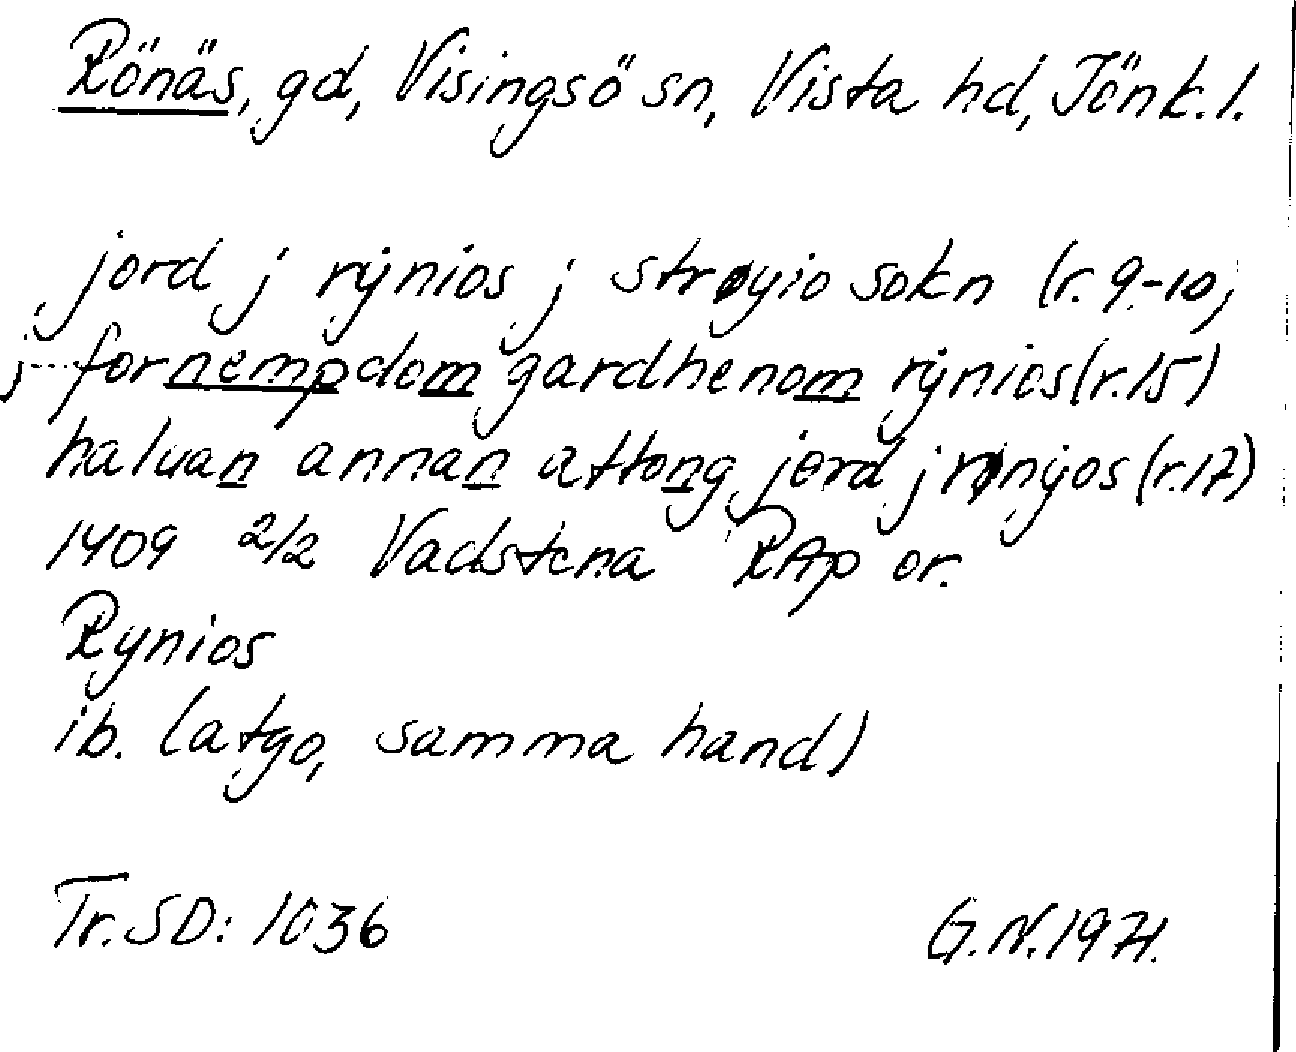 Rönäs, gd, Visingsö sn, Vista hd, Jönk. l.
jord j rýnios j strøyio sokn (r. 9-10;
j fornempdom gardhenom rýnios (r. 15)
haluan annan attong jord j rønÿos (r. 17)
1409 2/2 Vadstena RAp or.
Rynios
ib. (atgo, samma hand)
Tr. SD: 1036
G.N. 1971.